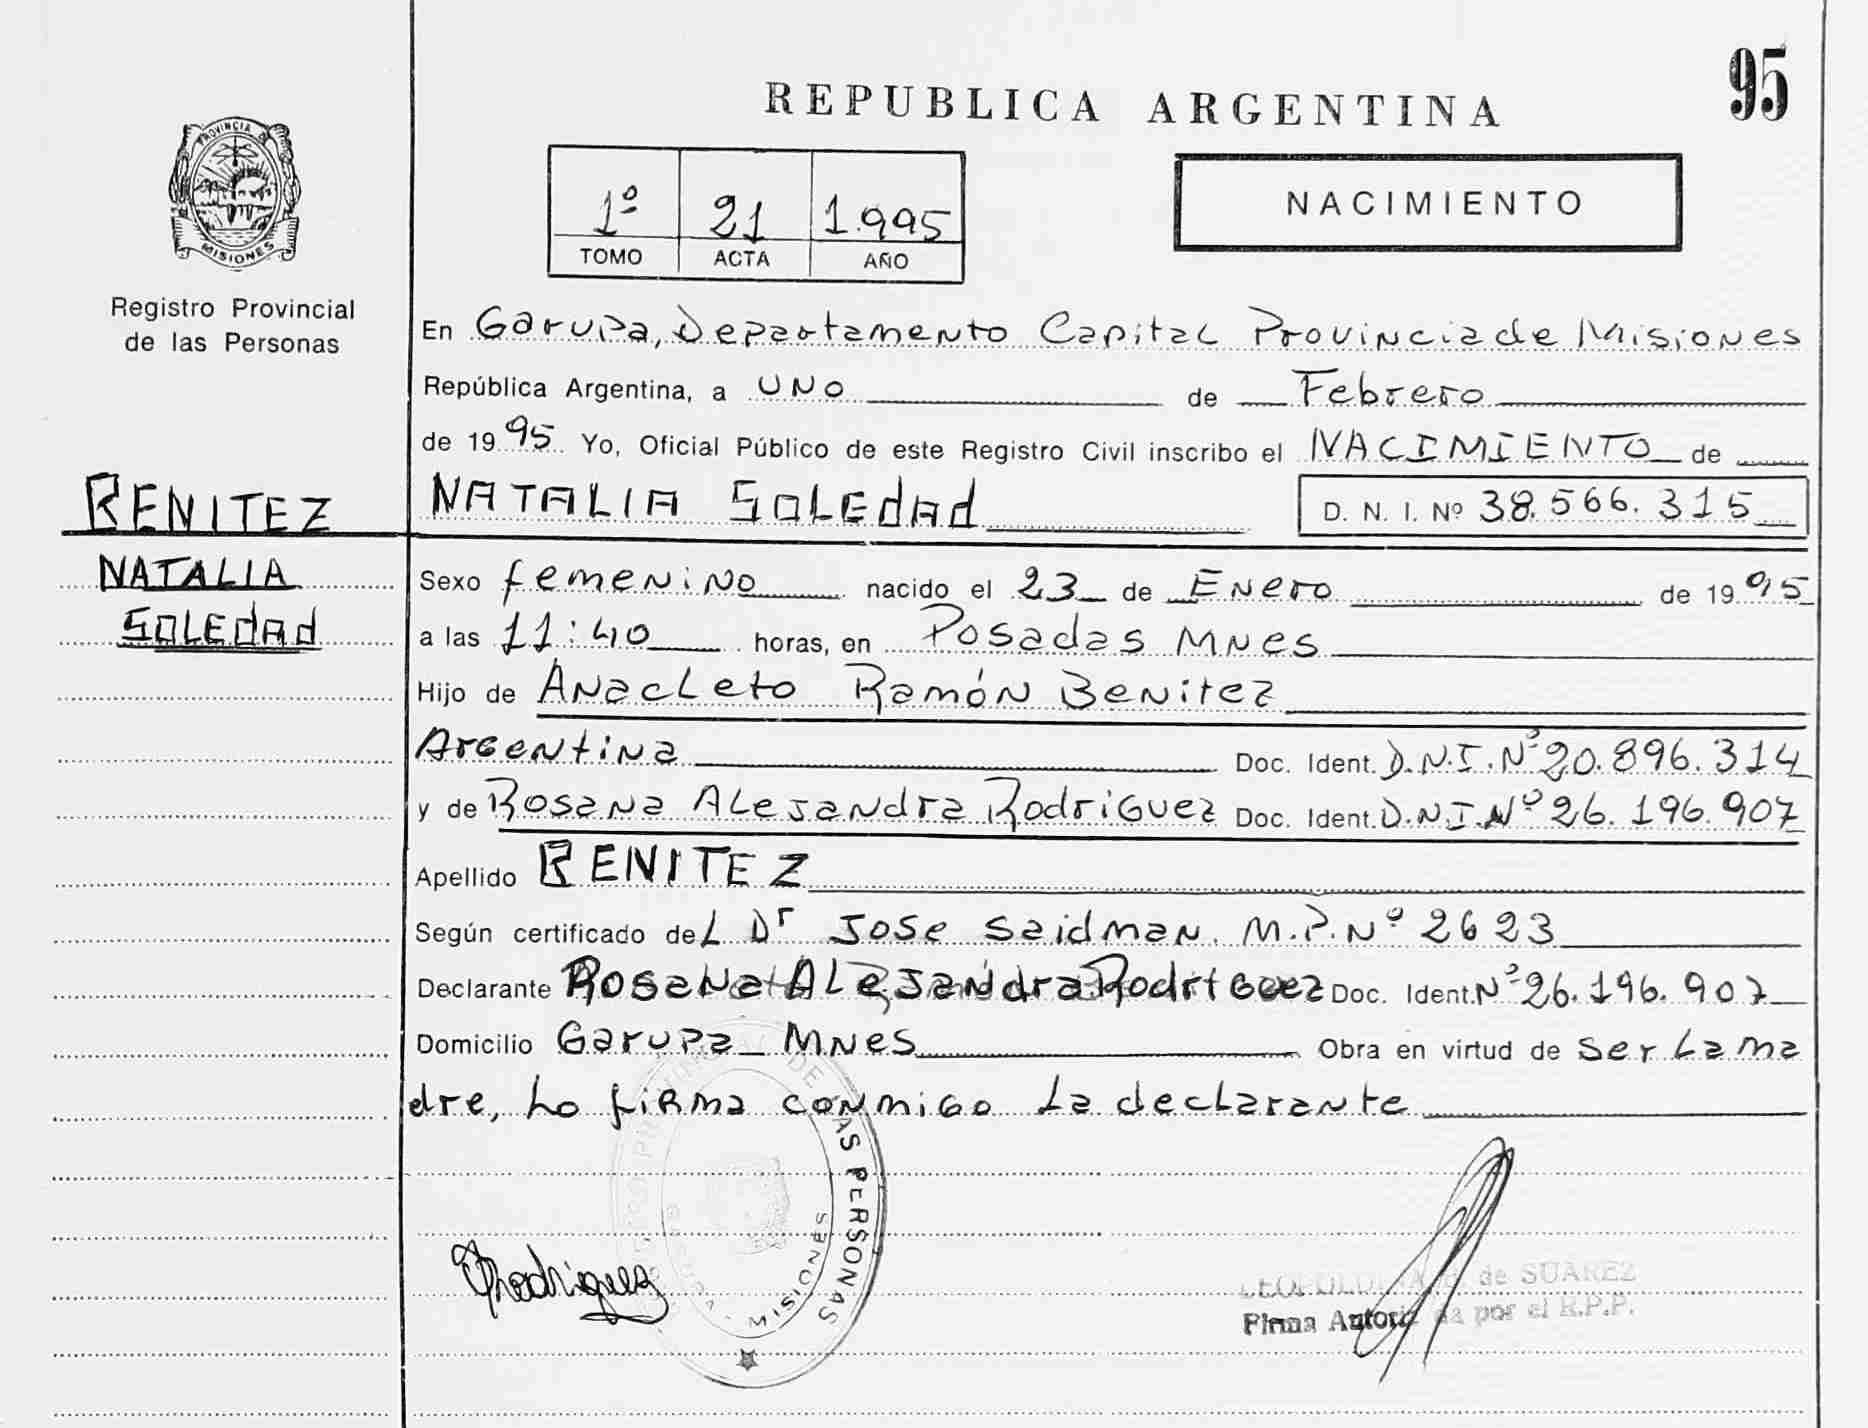 95
REPUBLICA ARGENTINA
PROVINCIA DE
MISIONES
Registro Provincial
de las Personas
1º 21 1.995
TOMO ACTA AÑO
NACIMIENTO
En Garupa, Departamento Capital Provincia de Misiones
República Argentina, a UNO de Febrero
de 1995 Yo, Oficial Público de este Registro Civil inscribo el NACIMIENTO de
BENITEZ
NATALIA SOLEdAd D. N. I. Nº 38.566.315
NATALIA
SOLEdAd
Sexo femenino nacido el 23 de Enero de 1995
a las 11:40 horas, en Posadas MNes
Hijo de Anacleto Ramón Benitez
Argentina Doc. Ident. D.N.I. Nº 20.896.314
y de Rosana Alejandra Rodriguez Doc. Ident. D.N.I. Nº 26.196.907
Apellido BENITEZ
Según certificado del Dr Jose Saidman. M.P. Nº 2623
Declarante Rosana Alejandra Rodriguez Doc. Ident. Nº 26.196.907
Domicilio Garupa MNes Obra en virtud de ser La ma
dre, Lo firma conmigo La declarante
DE LAS PERSONAS
MISIONES
Rodriguez
de SUAREZ
Firma por el R.P.P.